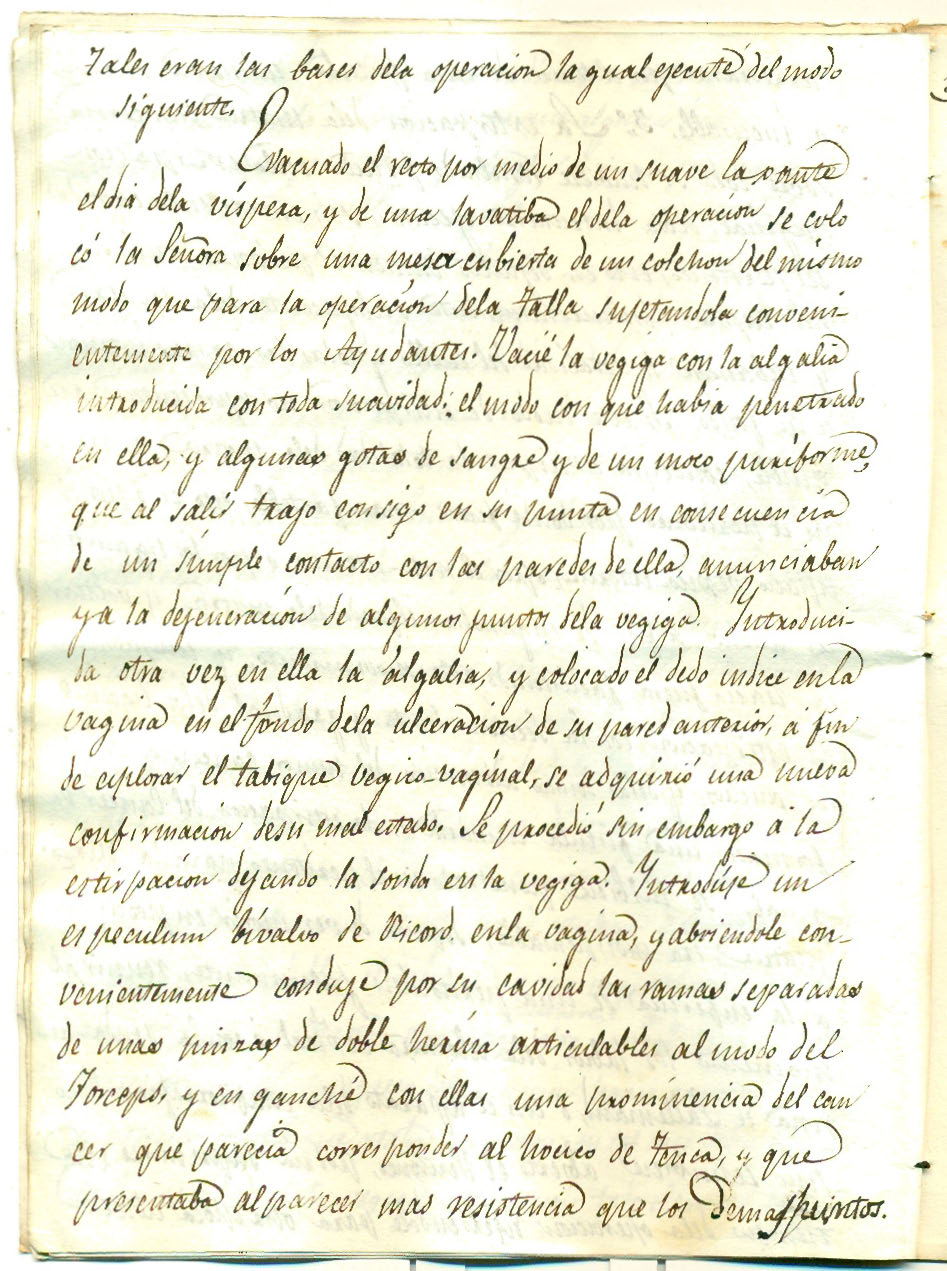 Tales eran las bases dela operacion la qual ejecuté del modo
siguiente.
Evacuado el recto por medio de un suave laxante
el dia dela vispera, y de una lavatiba el dela operacion se colo
có la Señora sobre una mesa cubierta de un colchon del mismo
modo que para la operacion dela Talla sujetandola conveni-
entemente por los Ayudantes. Vacié la vegiga con la algalia
introducida con toda suavidad; el modo con que habia penetrado
en ella, y algunas gotas de sangre y de un moco puriforme,
que al salir trajo consigo en su punta en consecuencia
de un simple contacto con las paredes de ella, anunciaban
ya la dejeneración de algunos puntos dela vegiga. Introduci-
da otra vez en ella la algalia, y colocado el dedo indice en la
vagina en el fondo dela ulceracion de su pared anterior, á fin
de esplorar el tabique vegico-vaginal, se adquirió una nueva
confirmacion desu mal estado. Se procedió sin embargo á la
estirpacion dejando la sonda en la vegiga. Introduje un
especulum bivalvo de Ricord en la vagina, y abriendole con-
venientemente conduje por su cavidad las ramas separadas
de unas pinzas de doble herina articulables al modo del
Forceps, y enganché con ellas una prominencia del can
cer que parecia corresponder al hocico de Tenca, y que
presentaba al parecer mas resistencia que los Demas puntos.